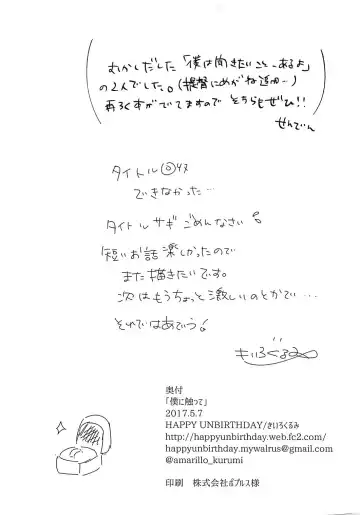 むかしだした「僕は向きたいこと、あるよ」
の2人でした。(提督にめがね追加…)
再ろくすがでてますので そちらもぜひ!!
せんでい
タイトル◎ヌキ
できなかった…
タイトルサギ ごめんなさい
短いお話 楽しかったので
また描きたいです。
次はもうちょっと激しいのとかで…
それではあでぅ
きいろくるみ
奥付
「僕に触って」
2017.5.7
HAPPY UNBIRTHDAY/きいろくるみ
http://happyunbirthday.web.fc2.com/
happyunbirthday.mywalrus@gmail.com
@amarillo_kurumi
印刷 株式会社ポプルス様